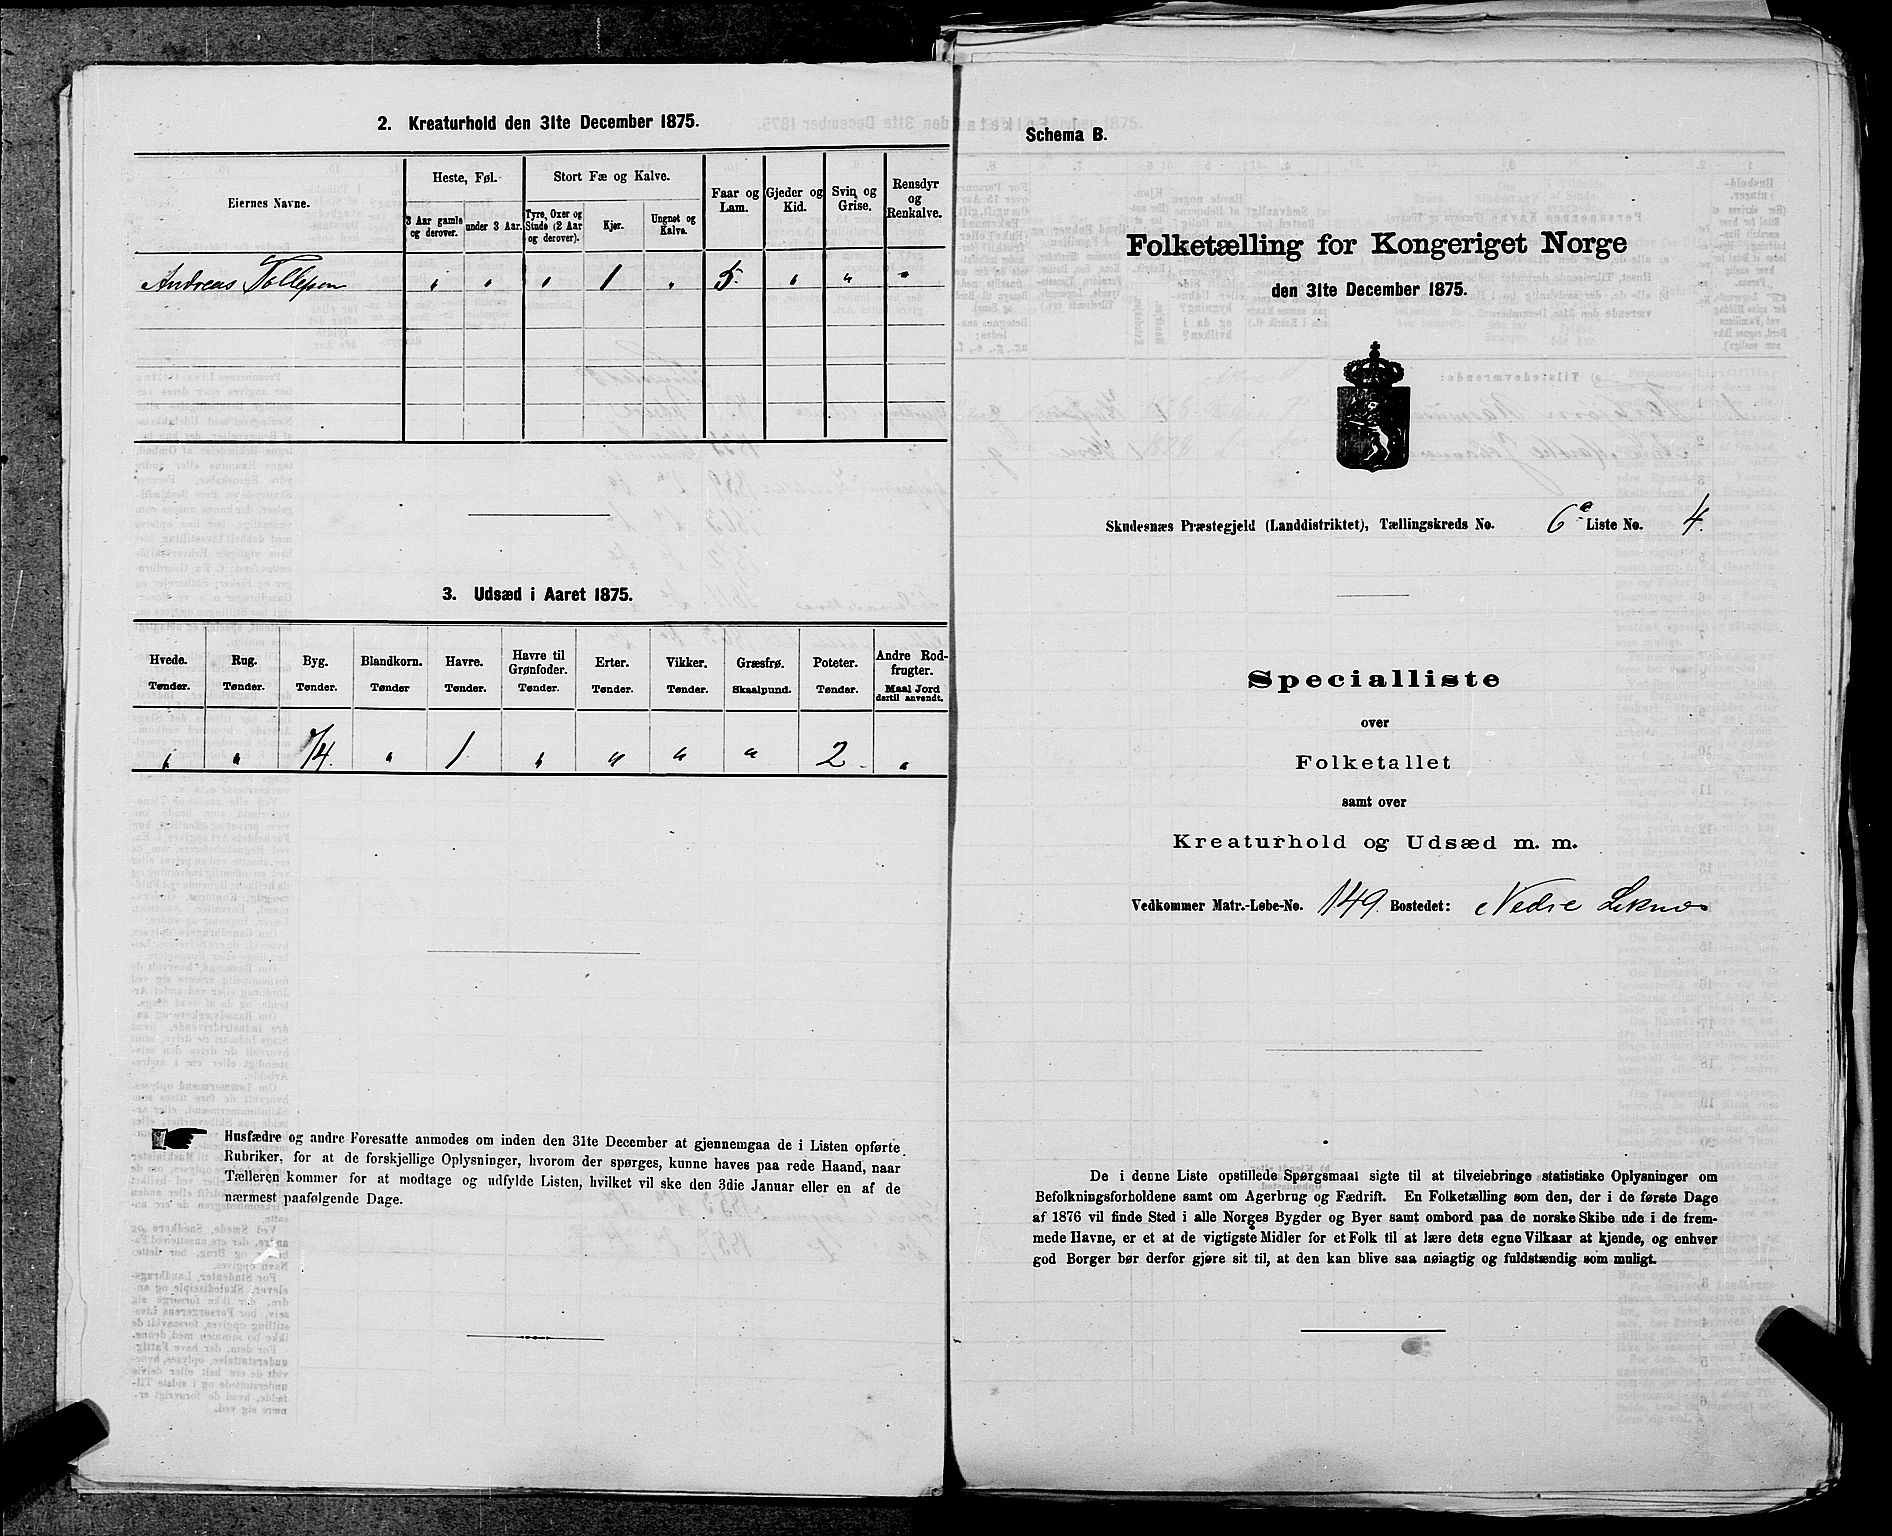 2. Kreaturhold den 31te December 1875.
Eiernes Navne.
Heste, Føl.
Stort Fæ og Kalve.
Faar og Lam.
Gjeder og Kid.
Svin og Grise.
Rensdyr og Renkalve.
3 Aar gamle og derover.
under 3 Aar.
Tyre, Oxer og Stude (2 Aar og derover).
Kjør.
Ungnøt og Kalve.
Andreas Tollefsen " " " 1 " 5 " " "
3. Udsæd i Aaret 1875.
Hvede. Rug. Byg. Blandkorn. Havre. Havre til Grønfoder. Erter. Vikker. Græsfrø. Poteter. Andre Rodfrugter.
Tønder. Tønder. Tønder. Tønder Tønder. Tønder. Tønder. Tønder. Skaalpund. Tønder. Maal Jord dertil anvendt.
" " 1/4 " 1 " " " " 2 "
Husfædre og andre Foresatte anmodes om inden den 31te December at gjennemgaa de i Listen opførte
Rubriker, for at de forskjellige Oplysninger, hvorom der spørges, kunne haves paa rede Haand, naar
Tælleren kommer for at modtage og udfylde Listen, hvilket vil ske den 3die Januar eller en af de
nærmest paafølgende Dage.
Schema B.
Folketælling for Kongeriget Norge
den 31te December 1875.
Skudesnæs Præstegjeld (Landdistriktet), Tællingskreds No. 6a Liste No. 4.
Specialliste
over
Folketallet
samt over
Kreaturhold og Udsæd m. m.
Vedkommer Matr.-Løbe-No. 149. Bostedet: Nedre Leknes
De i denne Liste opstillede Spørgsmaal sigte til at tilveiebringe statistiske Oplysninger om
Befolkningsforholdene samt om Agerbrug og Fædrift. En Folketælling som den, der i de første Dage
af 1876 vil finde Sted i alle Norges Bygder og Byer samt ombord paa de norske Skibe ude i de frem-
mede Havne, er et at de vigtigste Midler for et Folk til at lære dets egne Vilkaar at kjende, og enhver
god Borger bør derfor gjøre sit til, at den kan blive saa nøiagtig og fuldstændig som muligt.